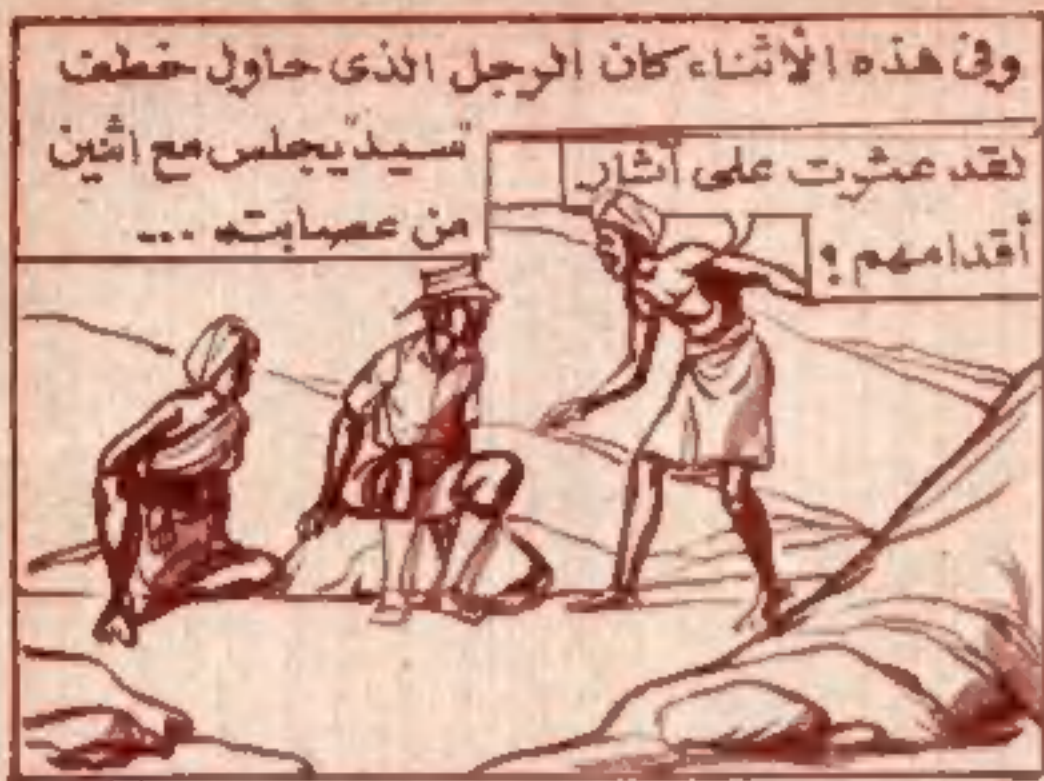 وفى هذه الأثناء كان الرجل الذى حاول خطف
"سيد" يجلس مع اثنين
من عصابته ...
لقد عثرت على آثار
أقدامهم !